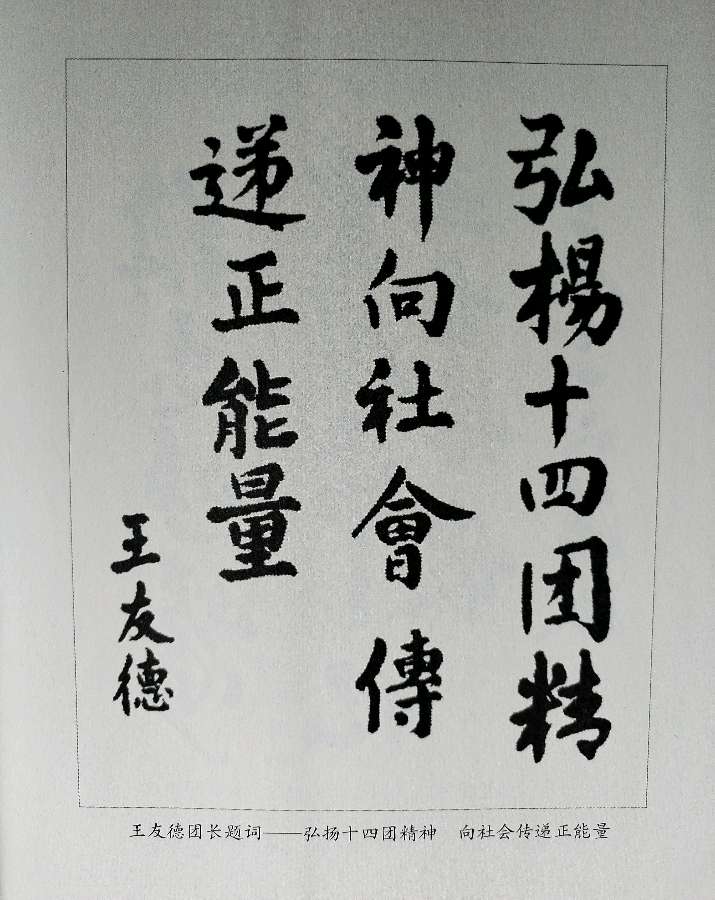 弘楊十四团精
神向社會傳
递正能量
王友德
王友德团长题词——弘扬十四团精神　向社会传递正能量